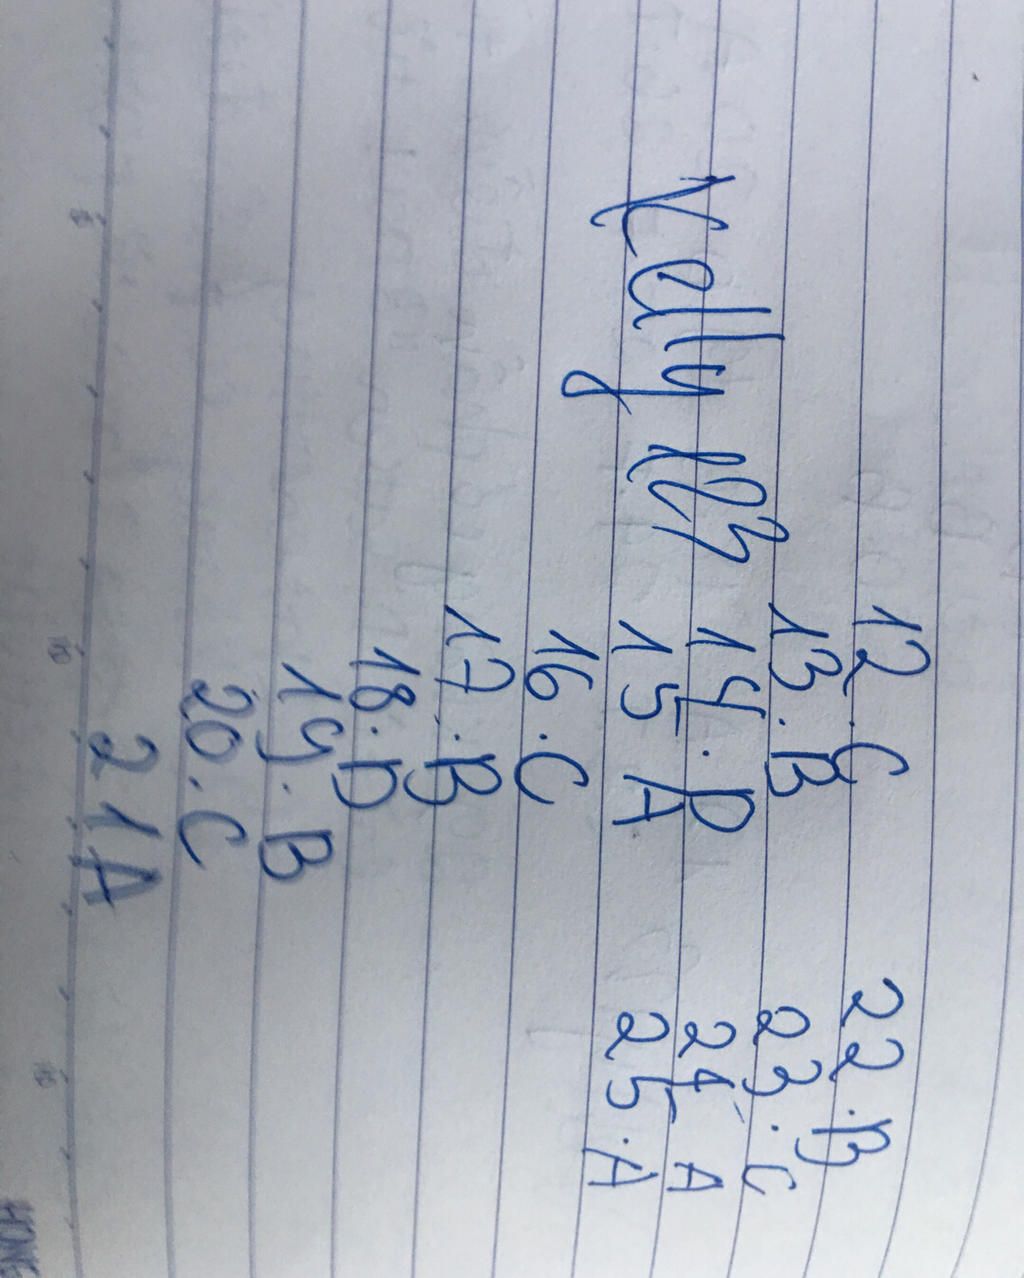 Kelly
12.C
13.B
14.D
15 A
16.C
17.B
18.D
19.B
20.C
21A
22.B
23.C
24 A
25.A
HONG